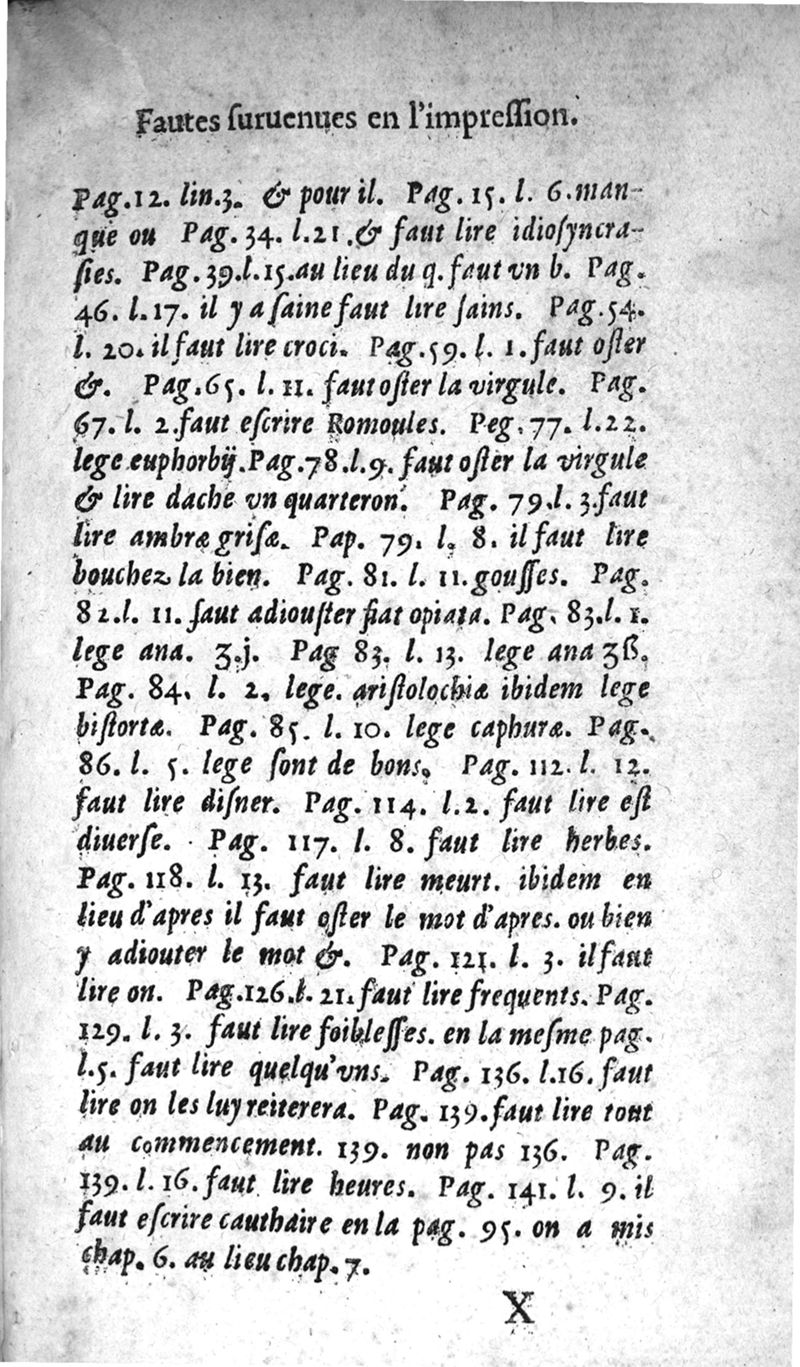 Fautes ſuruenues en l'impreſſion.
Pag.12. lin.3. & pour il. Pag. 15. l. 6.man-
que ou Pag. 34. l.21.& faut lire idioſyncra-
ſies. Pag. 39.l.15.au lieu du q. faut vn b. Pag.
46. l.17. il y a ſaine faut lire ſains. Pag.54.
l. 20. il faut lire croci. Pag.59. l. 1.faut oſter
&. Pag.65. l. 11. faut oſter la virgule. Pag.
67. l. 2.faut eſcrire Romoules. Peg. 77. l.22.
lege euphorbij.Pag.78.l.9. faut oſter la virgule
& lire dache vn quarteron. Pag. 79.l. 3.faut
lire ambræ griſæ. Pap. 79. l. 8. il faut lire
bouchez la bien. Pag. 81. l. 11.gouſſes. Pag.
82.l. 11. faut adiouſter fiat opiata. Pag. 83.l.1.
lege ana. ʒ.j. Pag 83. l. 13. lege ana ʒß.
Pag. 84. l. 2. lege. ariſtolochiæ ibidem lege
biſtortæ. Pag. 85. l. 10. lege caphuræ. Pag.
86. l. 5. lege ſont de bons. Pag. 112. l. 12.
faut lire diſner. Pag. 114. l.2. faut lire eſt
diuerſe. Pag. 117. l. 8. faut lire herbes.
Pag. 118. l. 13. faut lire meurt. ibidem en
lieu d'apres il faut oſter le mot d'apres. ou bien
y adiouter le mot &. Pag. 121. l. 3. il faut
lire on. Pag.126.l. 21.faut lire frequents. Pag.
129. l. 3. faut lire foibleſſes. en la meſme pag.
l.5. faut lire quelqu'vns. Pag. 136. l.16. faut
lire on les luy reiterera. Pag. 139.faut lire tout
au commencement. 139. non pas 136. Pag.
139. l. 16. faut lire heures. Pag. 141. l. 9. il
faut eſcrire cauthaire en la pag. 95. on a mis
chap. 6. au lieu chap. 7.
X